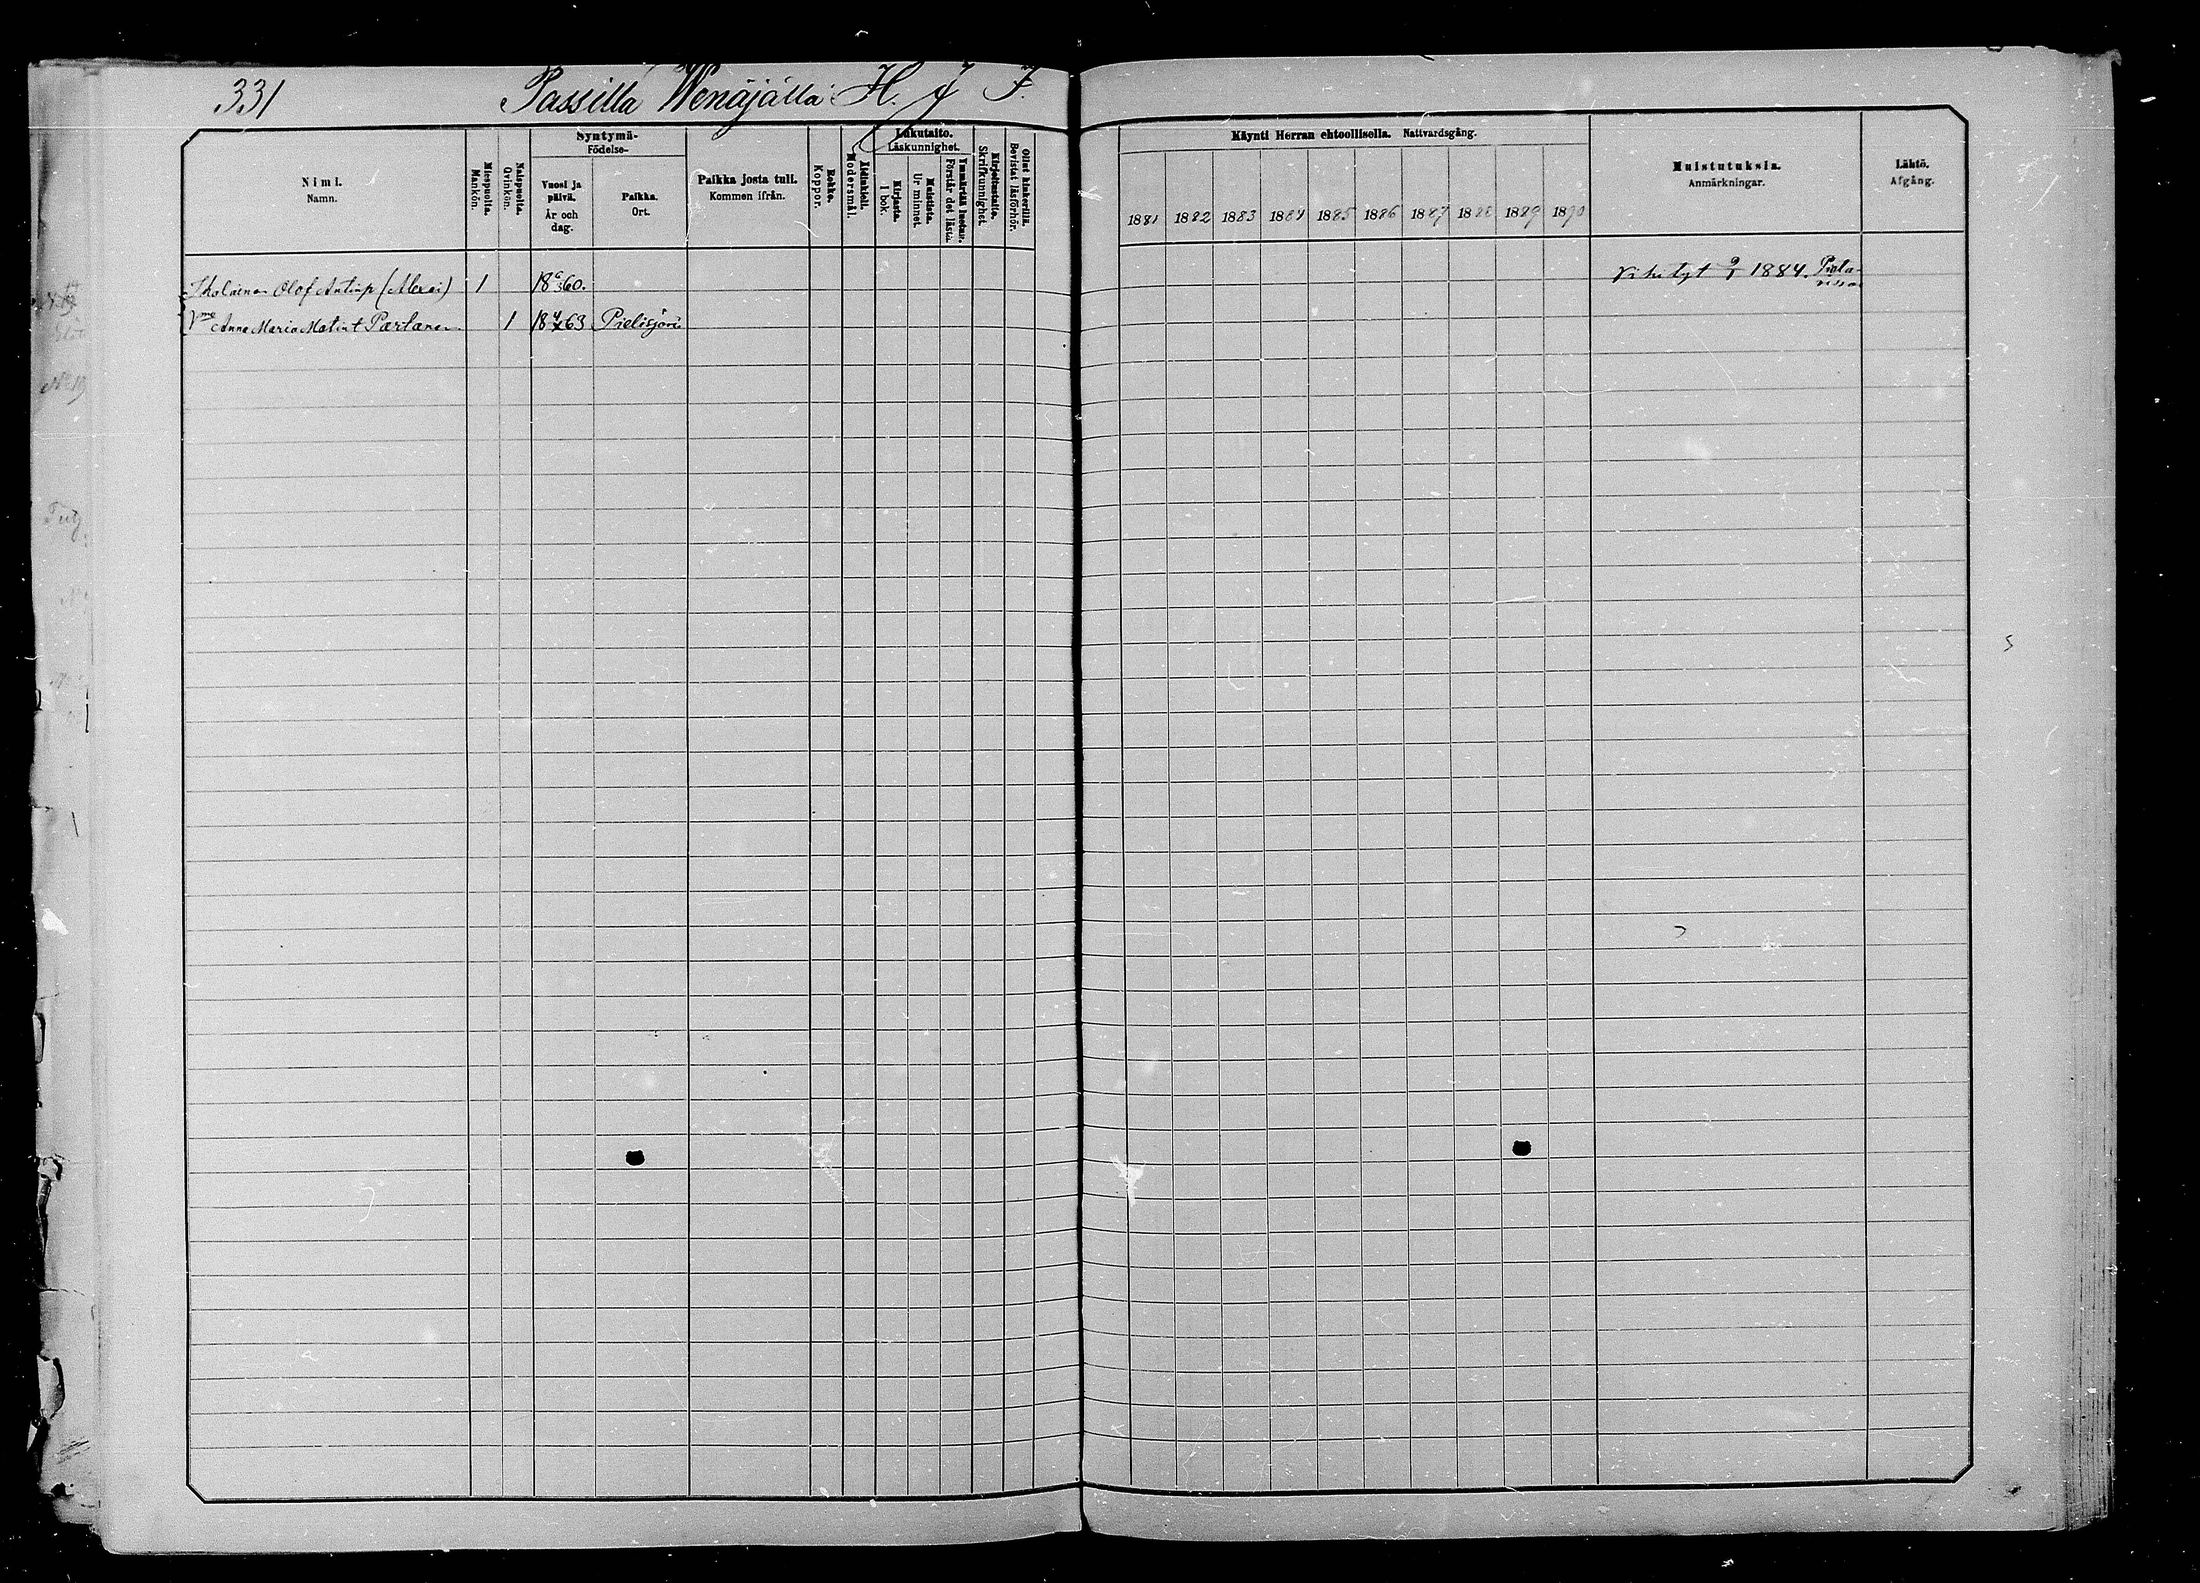 331 Passilla Wenäjällä H. J J.
Nimi.
Namn.
Miespuolta.
Mankön.
Naispuolta.
Qvinkön.
Syntymä-
Födelse-
Vuosi ja
päivä.
År och
dag.
Paikka.
Ort.
Paikka josta tuli.
Kommen ifrån.
Rokko.
Koppor.
Äidinkieli.
Modersmål.
Lukutaito.
Läskunnighet.
Kirjasta.
I bok.
Muistista.
Ur minnet.
Ymmärtää luetun.
Förstår det lästa.
Kirjoitustaito.
Skrifkunnighet.
Ollut kinkerillä.
Bevistat läsförhör.
Käynti Herran ehtoollisella. Nattvardsgång.
1881 1882 1883 1884 1885 1886 1887 1888 1889 1890
Muistutuksia.
Anmärkningar.
Lähtö.
Afgång.
Ikoläinen Olof Antinp (Alexei) 1 18 6/3 60. Vihityt 9/1 1884.
Vmo Anna Maria Matint Partanen 1 18 4/x 63 Pielisjärvi